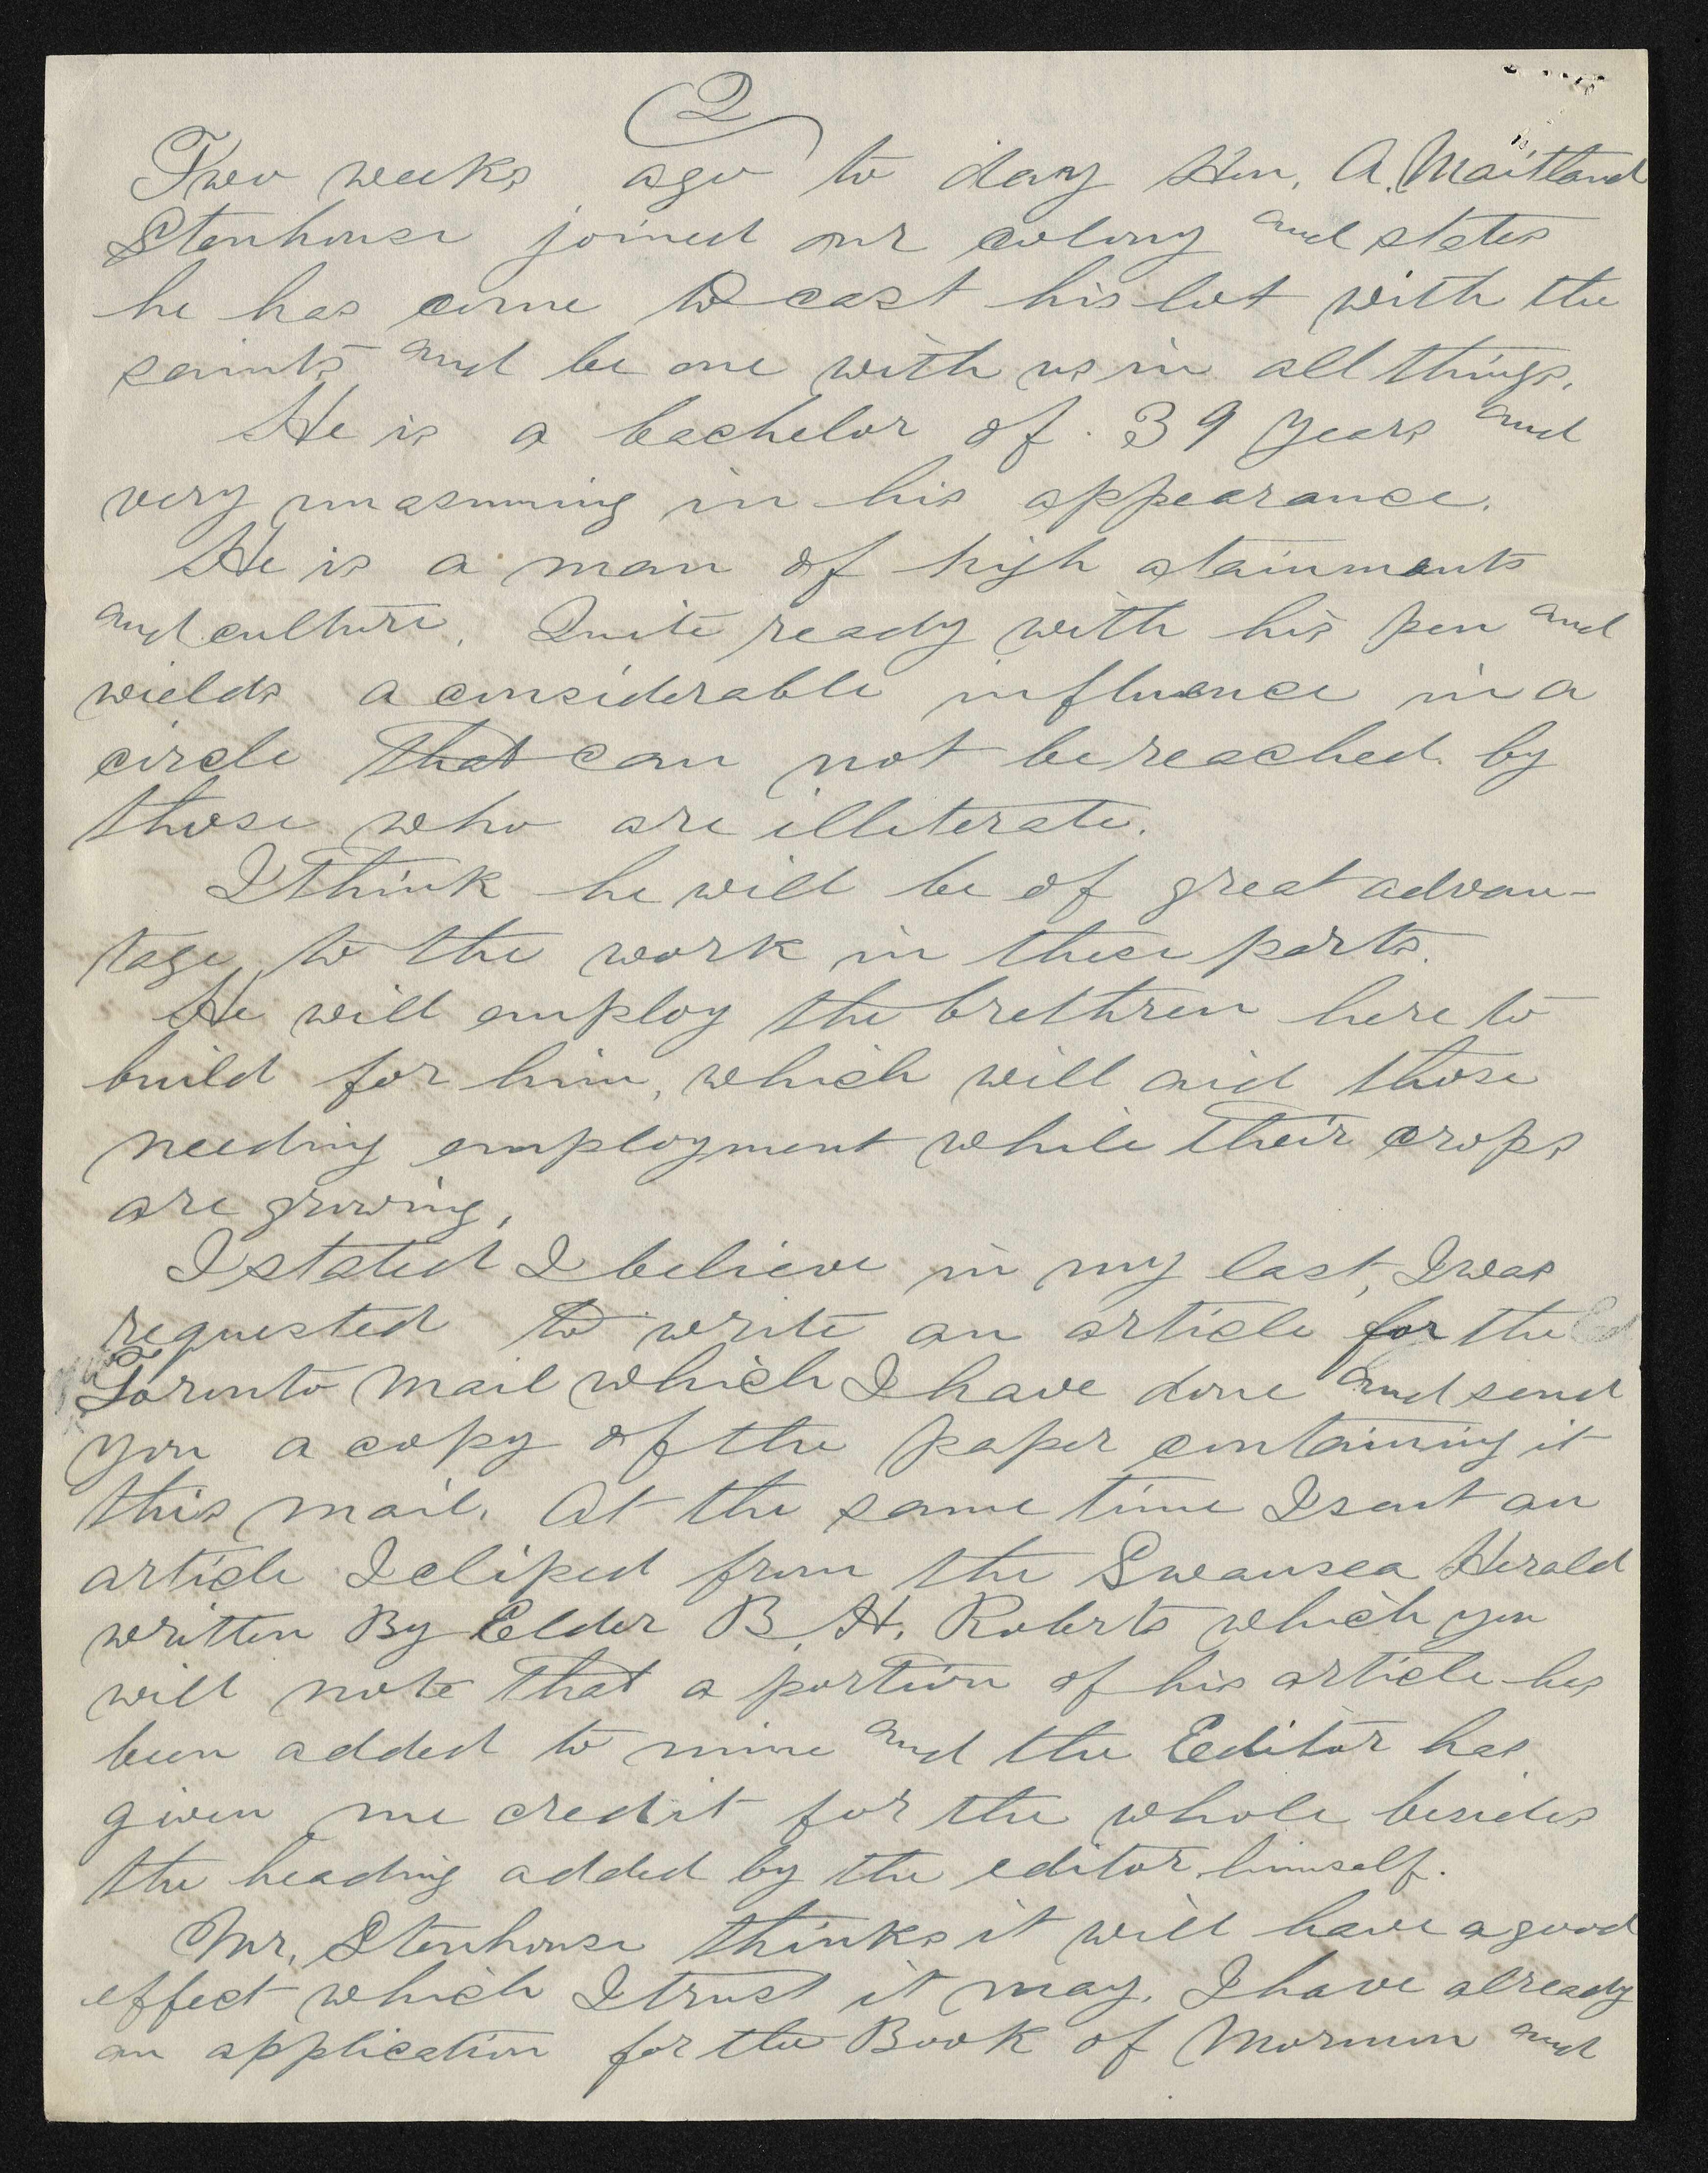 2
Two weeks ago to day Hon. A. Maitland
Stenhouse joined our colony and states
he has come to cast his lot with the
saints and be one with us in all things.
He is a bachelor of 39 years and
very unasuming in his appearance.
He is a man of high atainments
and culture. Quite ready with his pen and
wields a considerable influence in a
circle that can not be reached by
those who are illiterate.
I think he will be of great advan-
tage to the work in these parts.
He will employ the brethren here to
build for him, which will aid those
needing employment while their crops
are growing,
I stated I believe in my last, I was
requested to write an article for the Ed
Toronto Mail which I have done and send
you a copy of the paper containing it
this mail. At the same time I sent an
article I cliped from the Swansea Herald
written By Elder B. H. Roberts which you
will note that a portion of his article has
been added to mine and the Editor has
given me credit for the whole besides
the heading added by the editor himself.
Mr. Stenhouse thinks it will have a good
effect which I trust it may. I have already
an application for the Book of Mormon and